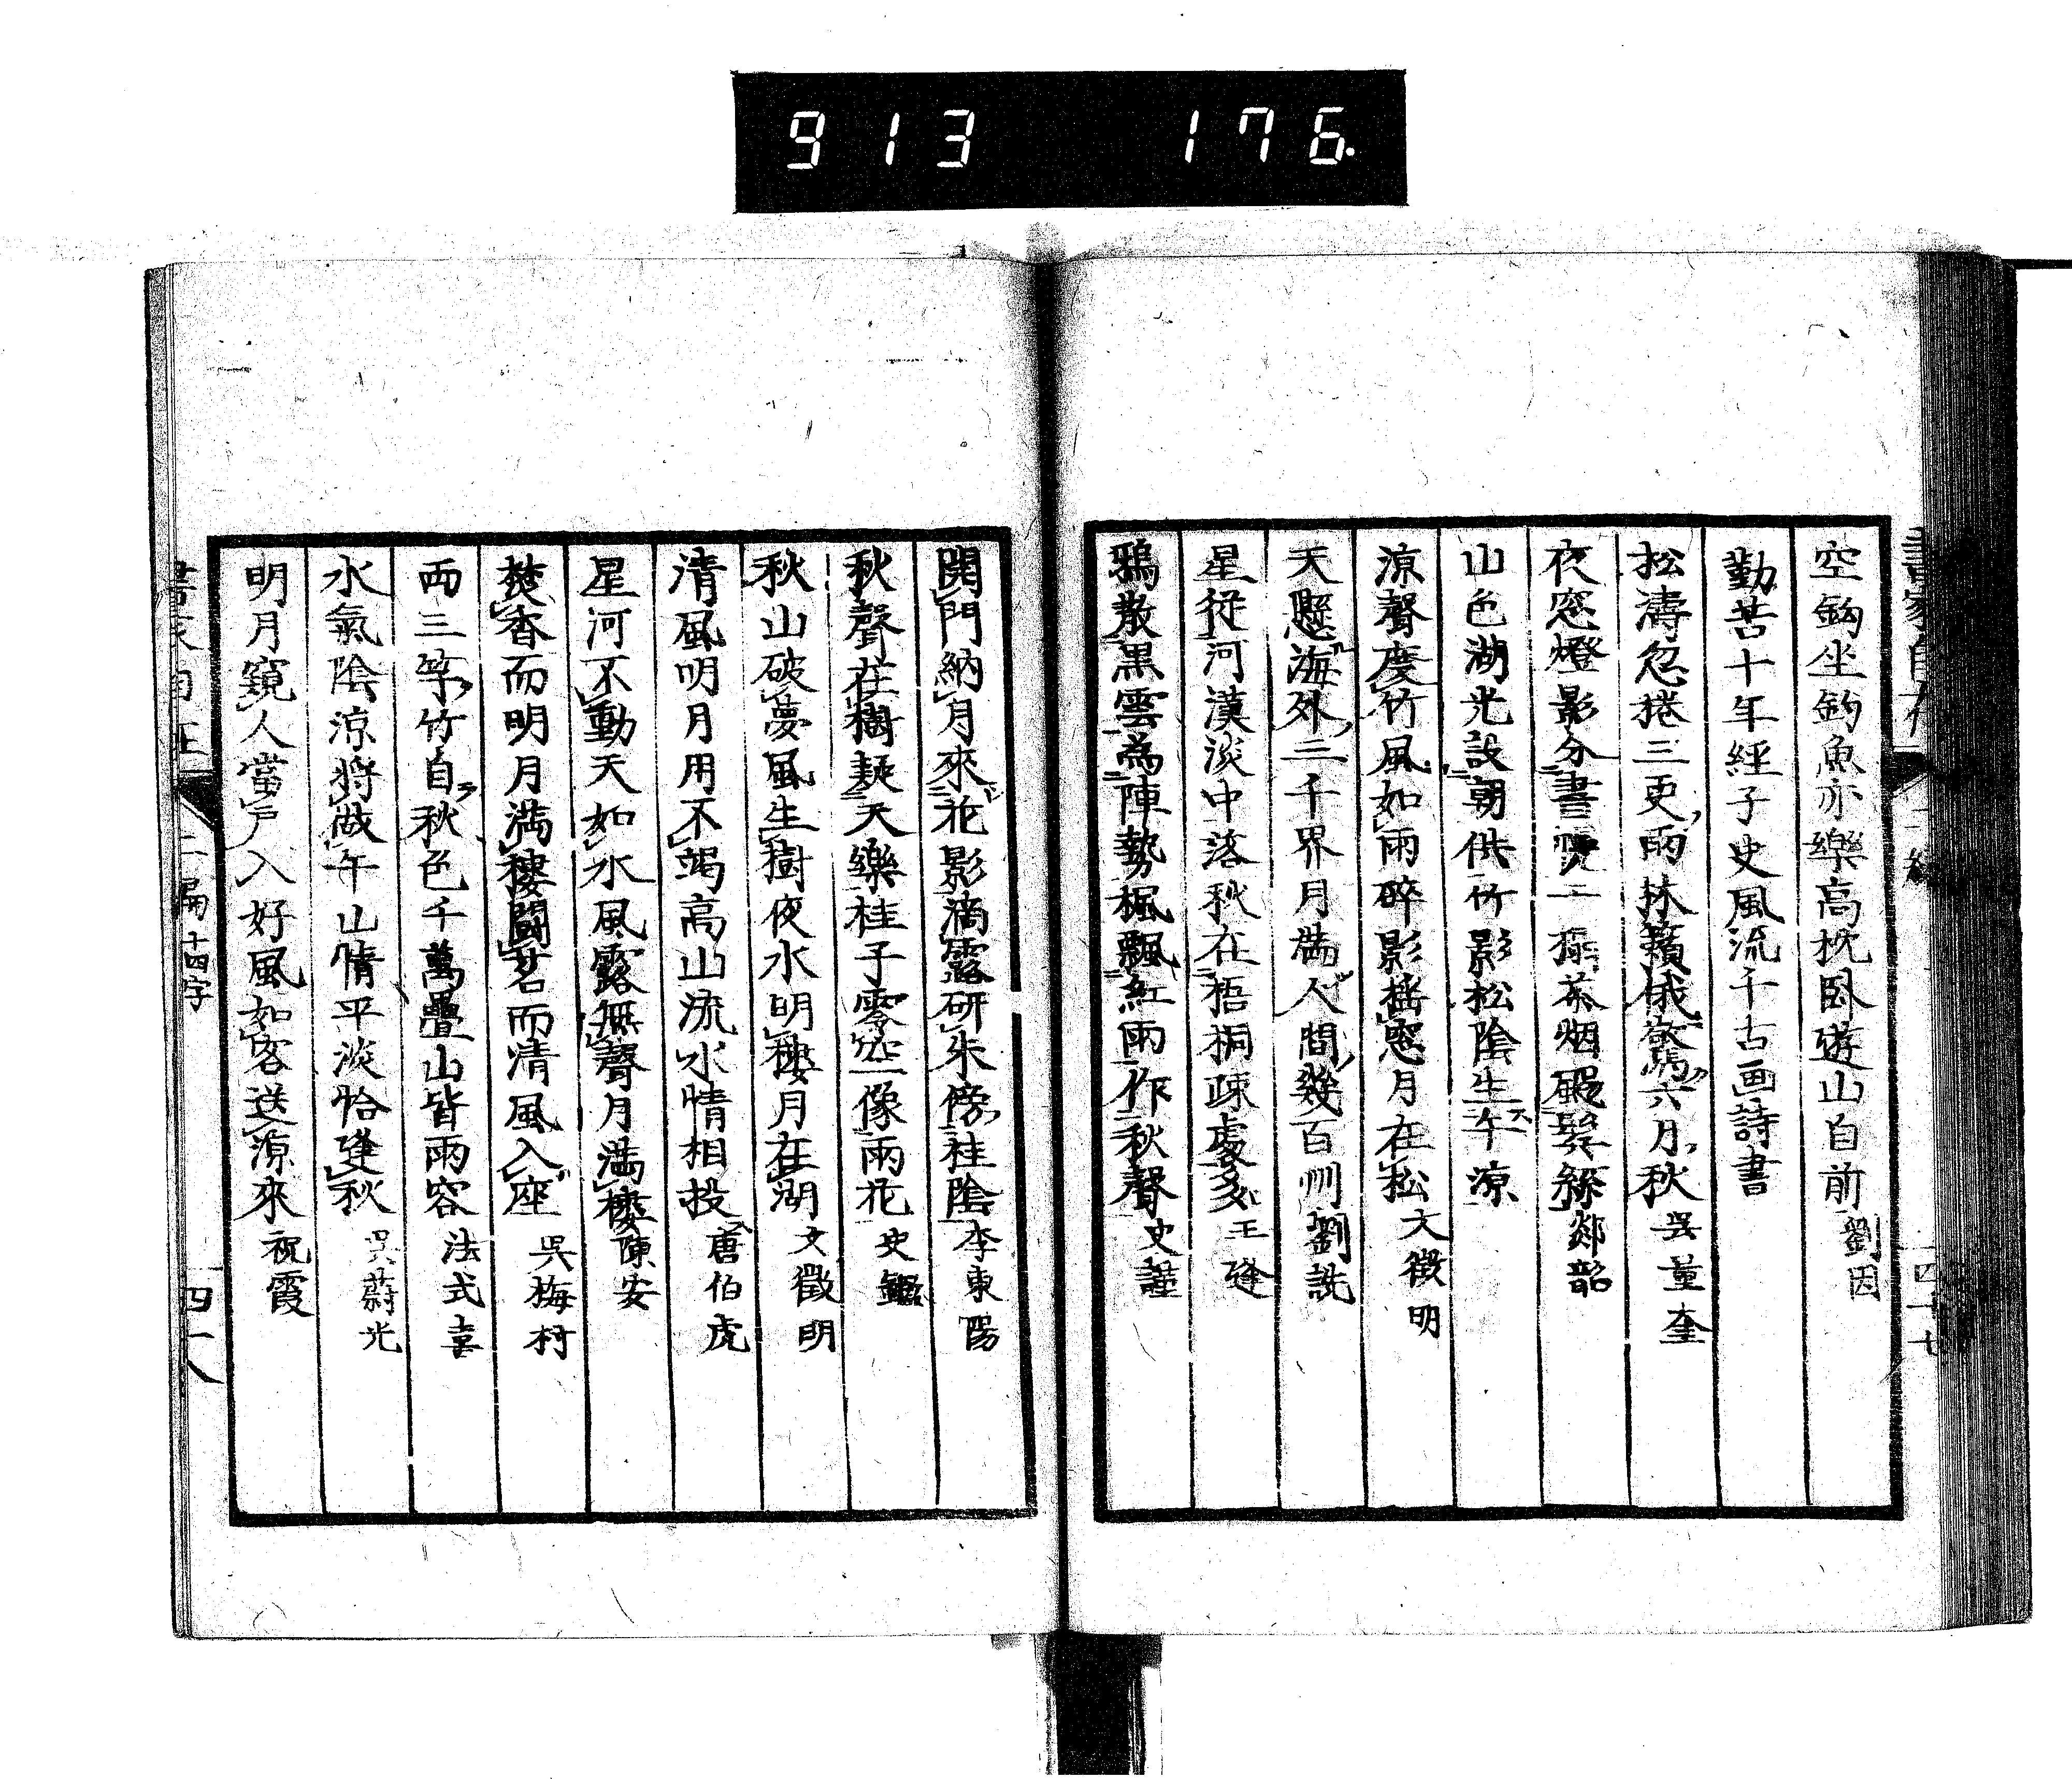 913 176.
空鈎坐釣魚亦樂高枕臥遊山自前 劉因
勤苦十年經子史風流千古画詩書
松濤忽捲三更雨林籟俄驚六月秋 吳量奎
夜窓燈影分書幌一掃茶烟颺鬂絲 郯韶
山色湖光設朝供竹影松陰生午凉
凉聲度竹風如雨碎影搖窓月在松 文徵明
天懸海外三千界月滿人間幾百州 劉詵
星從河漢淡中落秋在梧桐疎處多 王逢
鴉散黑雲為陣勢楓飄紅雨作秋聲 史謹
開門納月來花影滴露研朱傍桂陰 李東陽
秋聲在樹疑天樂桂子零空像雨花 史鑑
秋山破夢風生樹夜水明樓月在湖 文徵明
清風明月用不竭高山流水情相投 唐伯虎
星河不動天如水風露無聲月滿樓 陳安
焚香而明月滿樓鬪茗而清風入座 吳梅村
両三竿竹自秋色千萬疊山皆雨容 法式喜
水氣陰凉將做午山情平淡恰逢秋 吳蔚光
明月窺人當戸入好風如客送凉來 祝霞
十四字
四十八